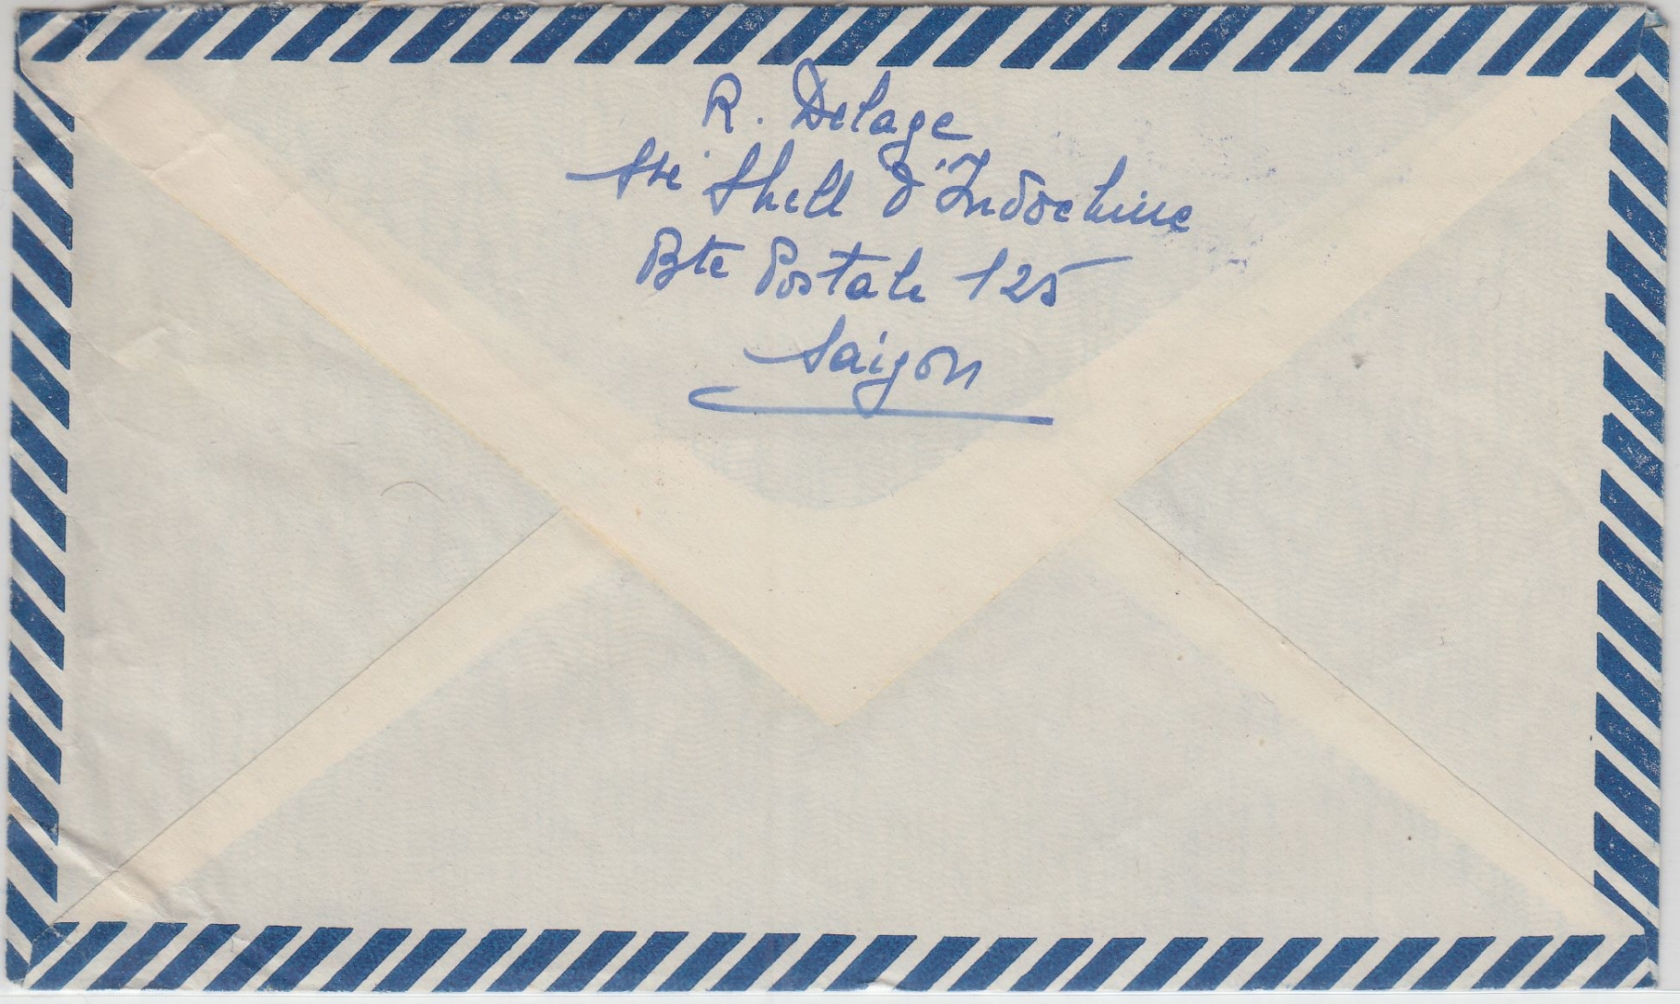 R. Delage
Sté Shell d'Indochine
Bte Postale 125
Saigon